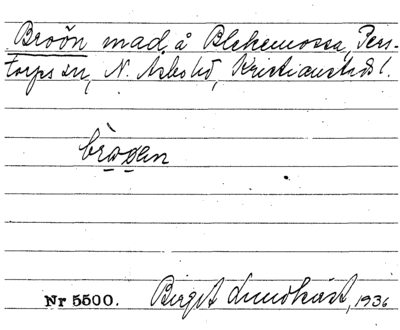 Broön mad, å Blekemossa, Pers-
torps sn, N. Åsbo hd, Kristianstads l.
bròqen
Nr 5500. Birgit Lundkvist, 1936